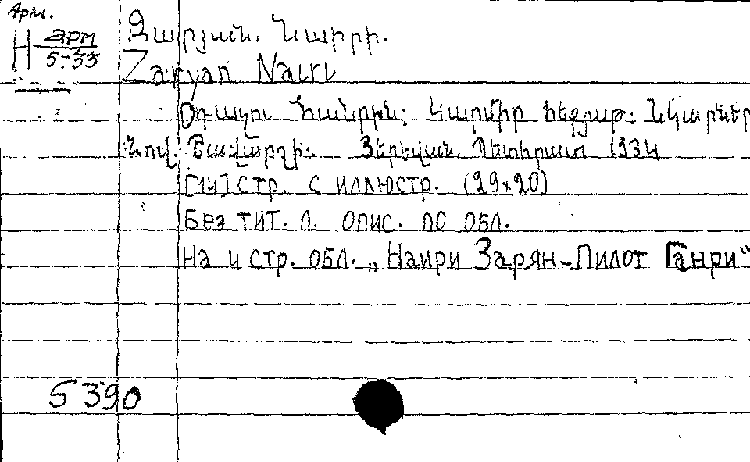 Арм.
Н арм
5-33
Զարյան. Նաիրի.
Zaryan Nairi
Օդաչու Հանրին: Կարմիր հեքյաթ: Նկարներ
Նով.
Յերեվան. Պետհրատ 1934
[14] стр. с иллюстр. (29×20)
Без тит. л. опис. по обл.
На 4 стр. обл. „Наири Зарян-Пилот Ганри"
5390